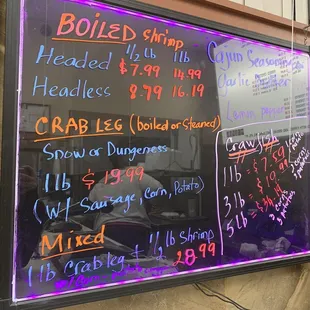 BOILED Shrimp
1/2 lb 1lb
Headed $7.99 14.99
Headless 8.79 16.19
CRAB LEG (boiled or Steamed)
Snow or Dungeness
1lb $19.99
(w/ Sausage, Corn, Potato)
Mixed
1lb Crab leg + 1/2 lb Shrimp
28.99
Cajun Seasoning
Garlic Butter
Crawfish
1lb = $7.59
3lb = $19.99
5lb =